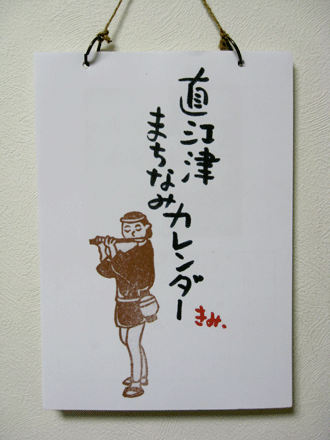 直江津
まちなみカレンダー
きみ.